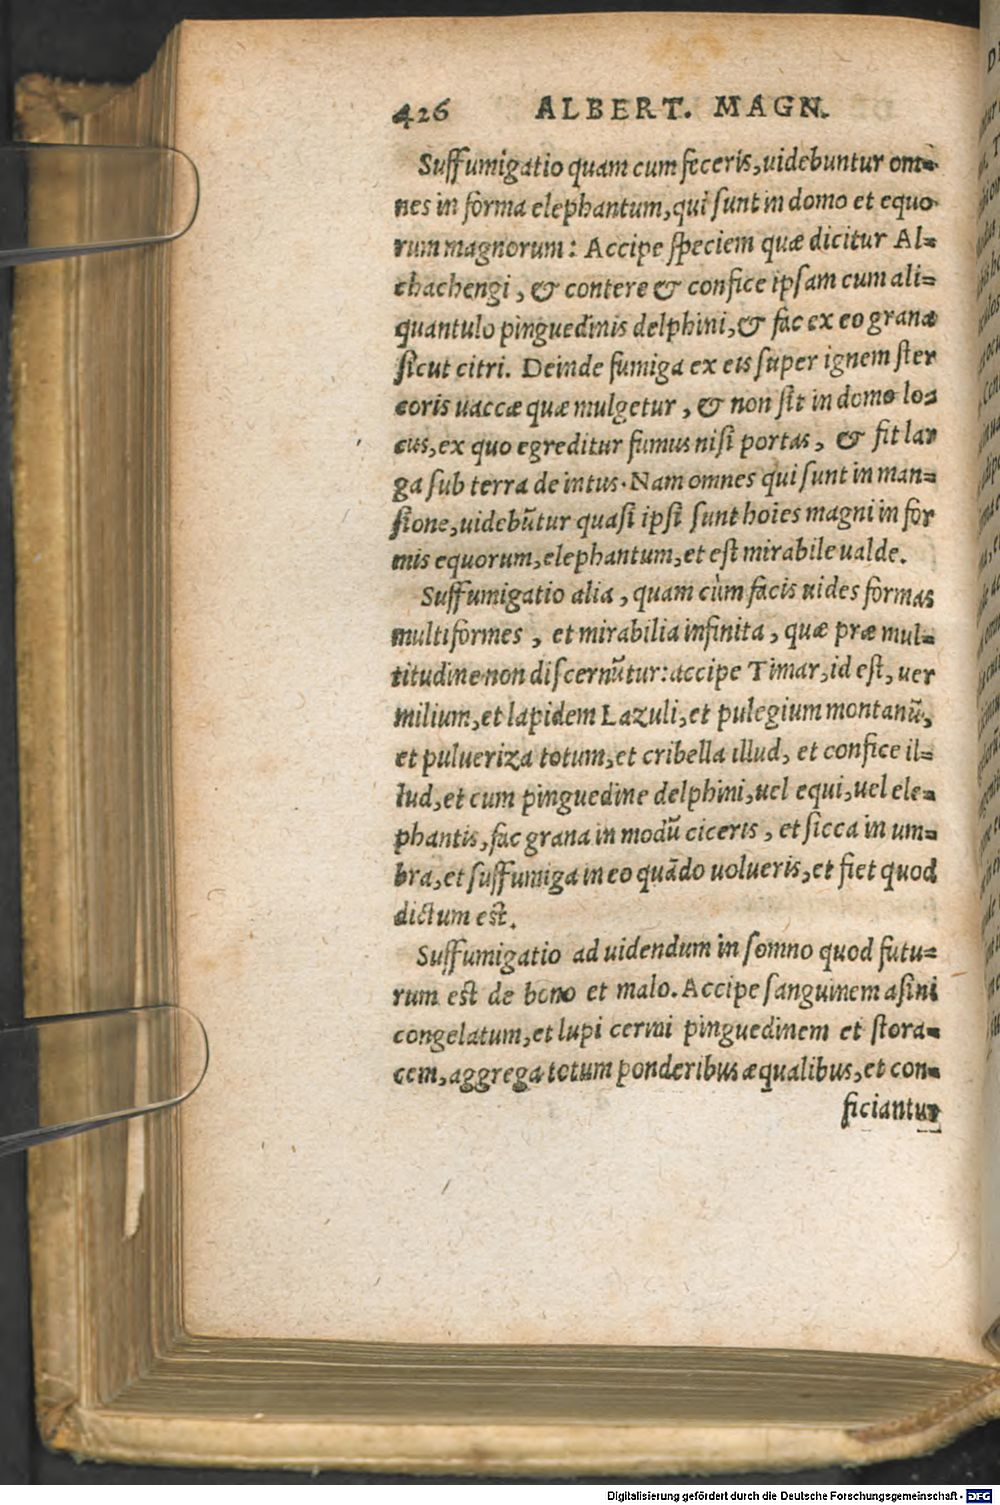 426 ALBERT. MAGN.
Suffumigatio quam cum feceris, uidebuntur om-
nes in forma elephantum, qui sunt in domo et equo
rum magnorum: Accipe speciem quæ dicitur Al-
chachengi, & contere & confice ipsam cum ali-
quantulo pinguedinis delphini, & fac ex eo grana
sicut citri. Deinde fumiga ex eis super ignem ster
coris uaccæ quæ mulgetur, & non sit in domo lo-
cus, ex quo egreditur fumus nisi portas, & fit lar
ga sub terra de intus. Nam omnes qui sunt in man-
sione, uidebũtur quasi ipsi sunt hoies magni in for
mis equorum, elephantum, et est mirabile ualde.
Suffumigatio alia, quam cùm facis uides formas
multiformes, et mirabilia infinita, quæ præ mul-
titudine non discernũtur: accipe Timar, id est, uer
milium, et lapidem Lazuli, et pulegium montanũ,
et pulueriza totum, et cribella illud, et confice il-
lud, et cum pinguedine delphini, uel equi, uel ele-
phantis, fac grana in modũ ciceris, et sicca in um-
bra, et suffumiga in eo quãdo uolueris, et fiet quod
dictum est.
Suffumigatio ad uidendum in somno quod futu-
rum est de bono et malo. Accipe sanguinem asini
congelatum, et lupi cerui pinguedinem et stora-
cem, aggrega totum ponderibus æqualibus, et con-
ficiantur
Digitalisierung gefördert durch die Deutsche Forschungsgemeinschaft - DFG